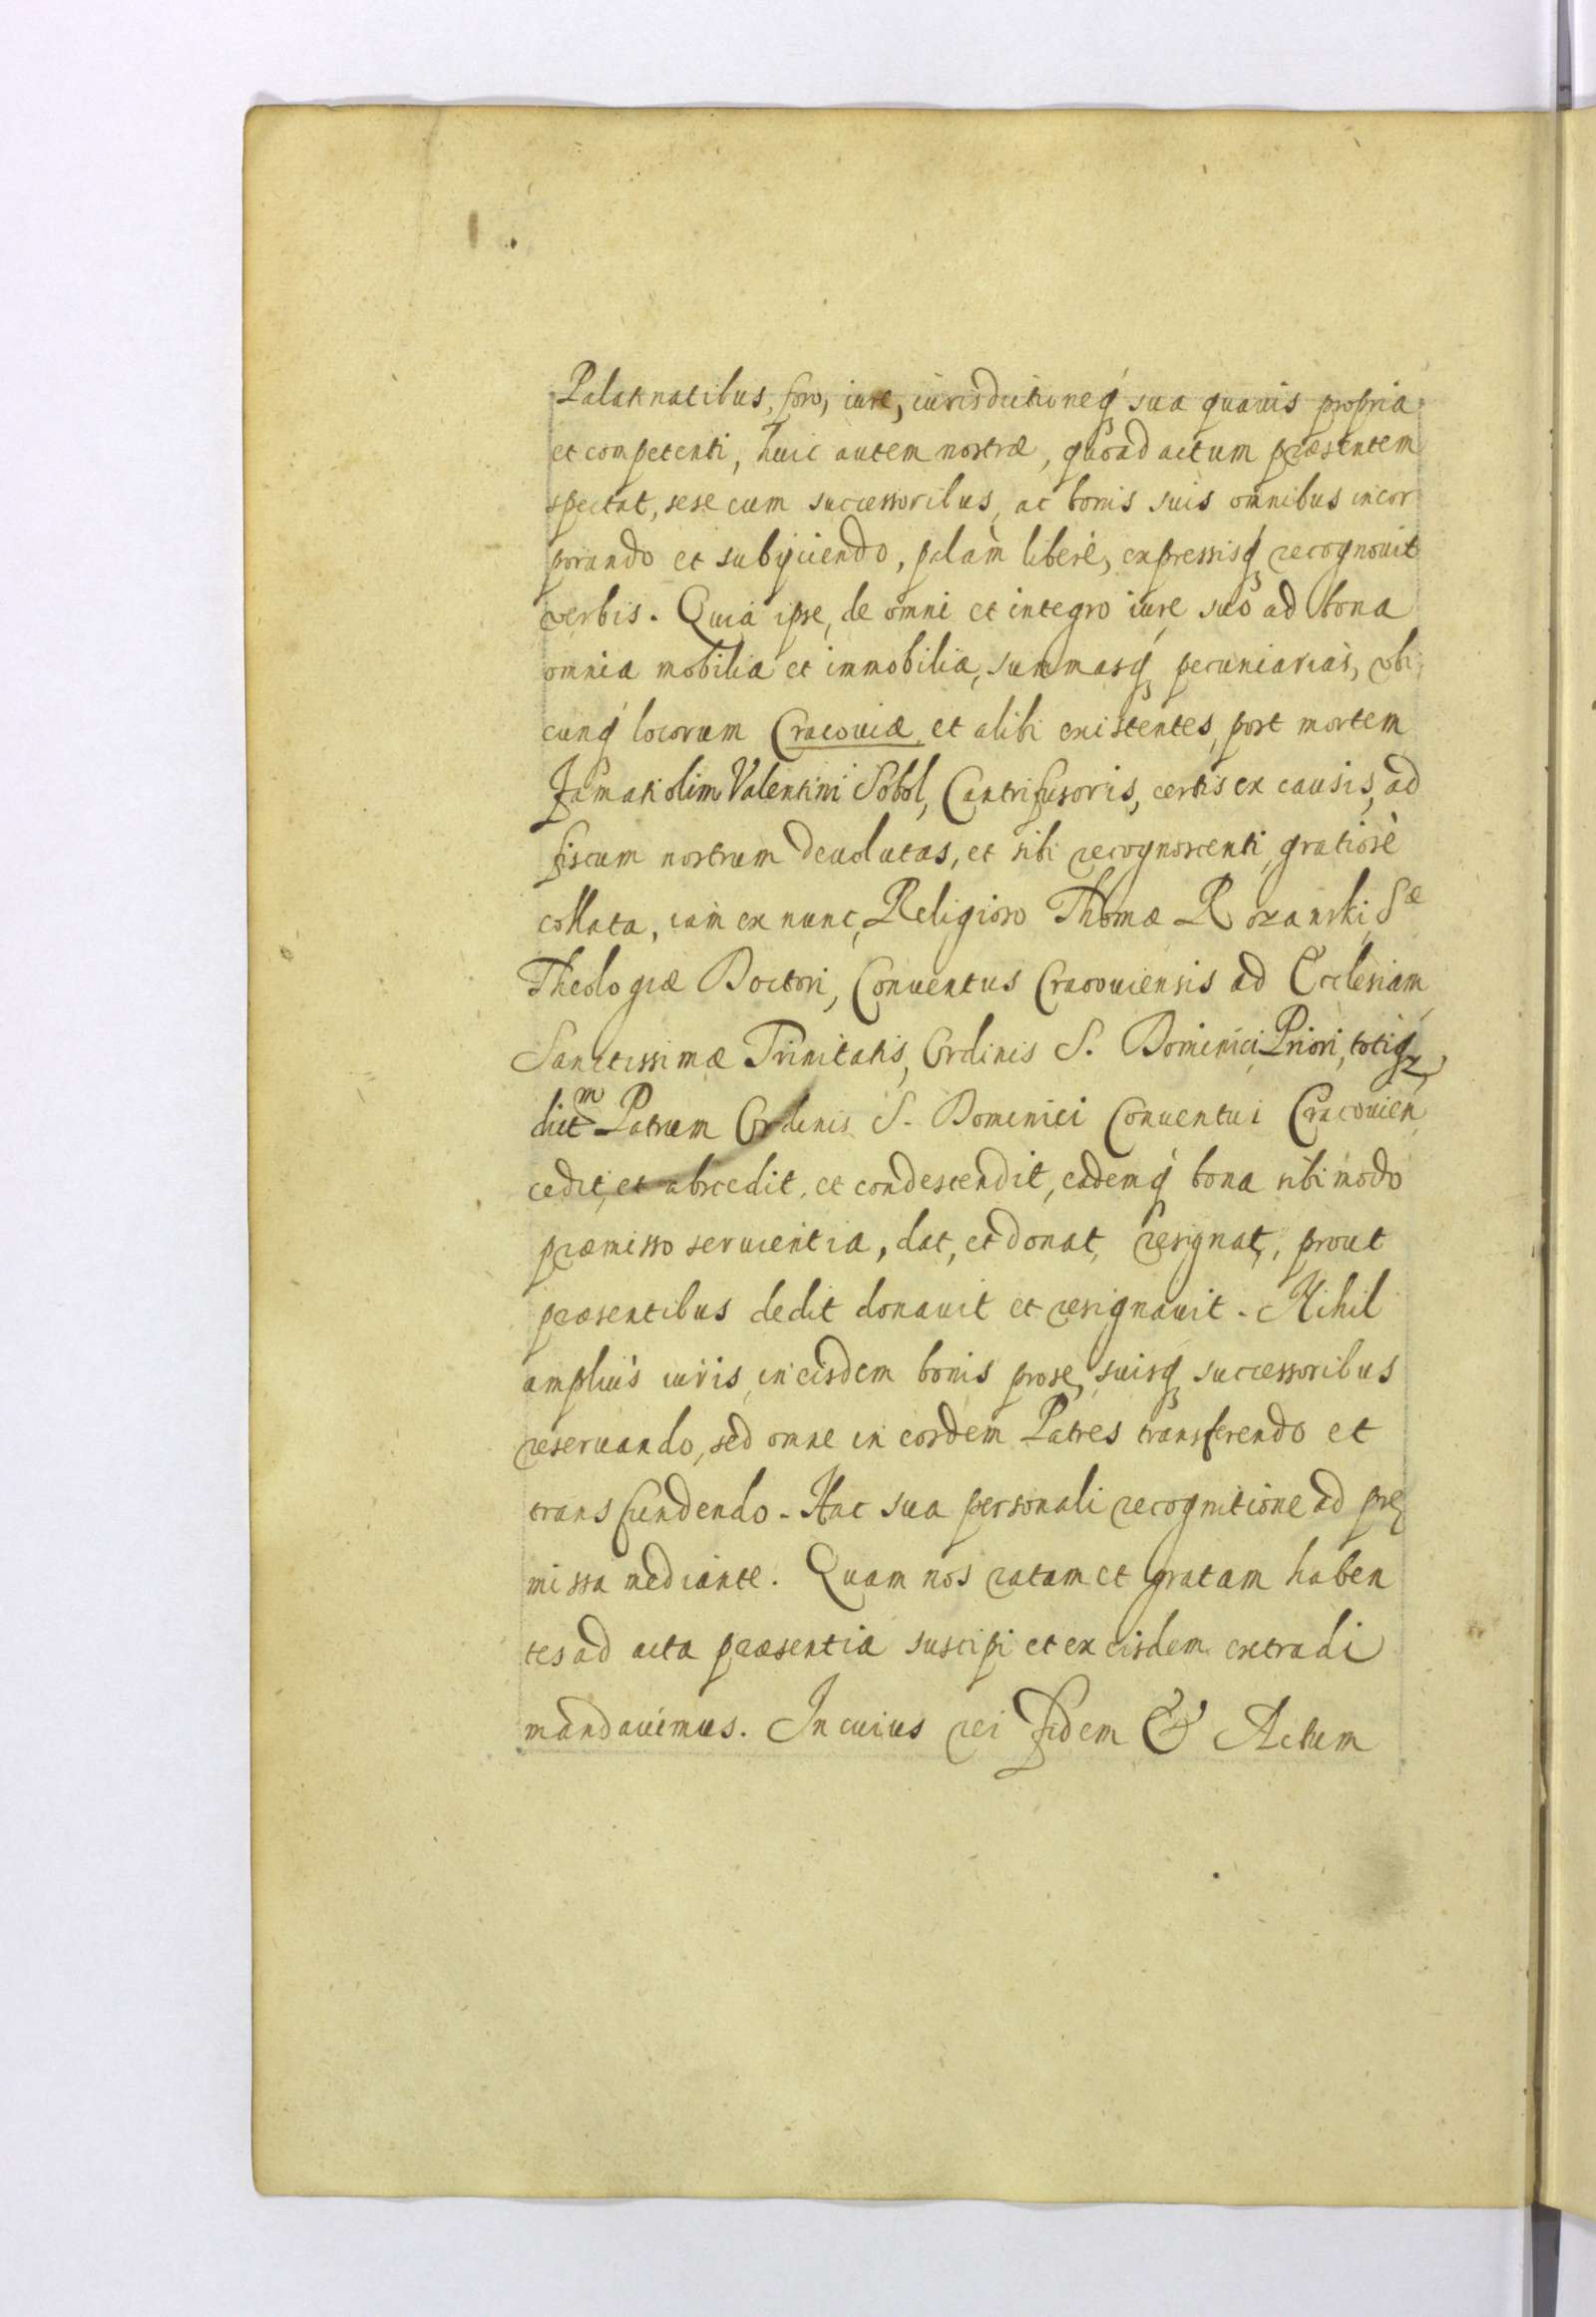 Palatinatibus, foro, iure, iurisdictioneq́ sua quauis propria
et competenti, huic autem nostræ, quoad actum præsentem
spectat, sese cum successoribus, ac bonis suis omnibus incor
porando et subijciendo, palàm liberè, expressisq́ recognouit
verbis. Quia ipse, de omni et integro iure suo ad bona
omnia mobilia et immobilia, summasq́ pecuniarias, vbi
cunq́ locorum Cracouiæ et alibi existentes, post mortem
Famati olim Valentini Sobol, Cantrifusoris, certis ex causis, ad
fiscum nostrum deuolutas, et sibi recognoscenti, gratiosè
collata, iam ex nunc, Religioso Thomæ Rozanski, Sæ
Theologiæ Doctori, Conuentus Cracouiensis ad Ecclesiam
Sanctissimæ Trinitatis, Ordinis S. Dominici Priori, totiq
dictm Patrum Ordinis S. Dominici Conuentui Cracouien
cedit, et abscedit, et condescendit, eademq́ bona sibi modo
præmisso seruientia, dat, et donat, resignat, prout
præsentibus dedit donauit et resignauit. Nihil
ampliùs iuris, in eisdem bonis pro se, suisq́ successoribus
reseruando, sed omne in eosdem Patres transferendo et
transfundendo. Hac sua personali recognitione ad prę
missa mediante. Quam nos ratam et gratam haben
tes ad acta præsentia suscipi et ex eisdem extradi
mandauimus. In cuius rei fidem & Actum